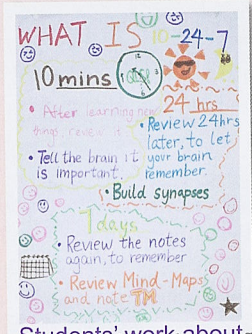 WHAT IS 10-24-7
10 mins
• After learning new
things, review it
• Tell the brain it
is important.
24 hrs
• Review 24hrs
later, to let
your brain
remember.
• Build synapses
7 days
• Review the notes
again, to remember
• Review Mind-Maps
and note TM
Students' work about